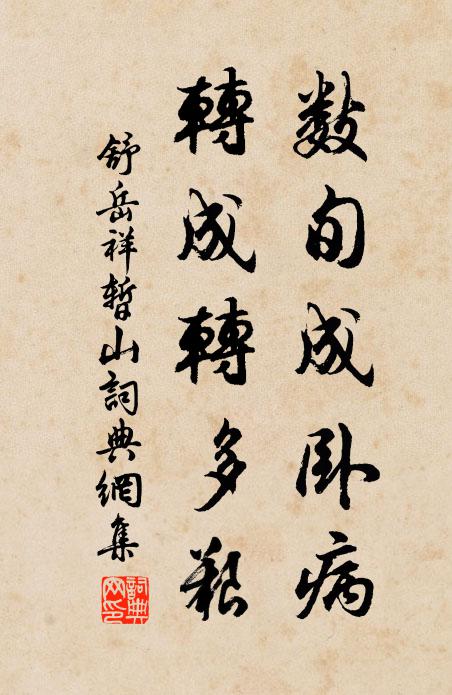 數旬成卧病
轉成轉多艱
舒岳祥暫山詞典網集
詞典